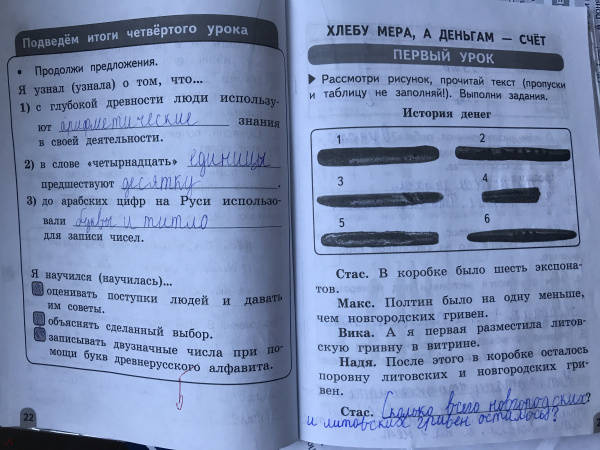 Подведём итоги четвёртого урока
• Продолжи предложения.
Я узнал (узнала) о том, что...
1) с глубокой древности люди использу-
ют арифметические знания
в своей деятельности.
2) в слове «четырнадцать» единицы
предшествуют десятку.
3) до арабских цифр на Руси использо-
вали буквы и титло
для записи чисел.
Я научился (научилась)...
оценивать поступки людей и давать
им советы.
объяснять сделанный выбор.
записывать двузначные числа при по-
мощи букв древнерусского алфавита.
22
ХЛЕБУ МЕРА, А ДЕНЬГАМ — СЧЁТ
ПЕРВЫЙ УРОК
Рассмотри рисунок, прочитай текст (пропуски
и таблицу не заполняй!). Выполни задания.
История денег
1 2
3 4
5 6
Стас. В коробке было шесть экспона-
тов.
Макс. Полтин было на одну меньше,
чем новгородских гривен.
Вика. А я первая разместила литов-
скую гривну в витрине.
Надя. После этого в коробке осталось
поровну литовских и новгородских гри-
вен.
Стас. Сколько всего новгородских
и литовских гривен осталось?